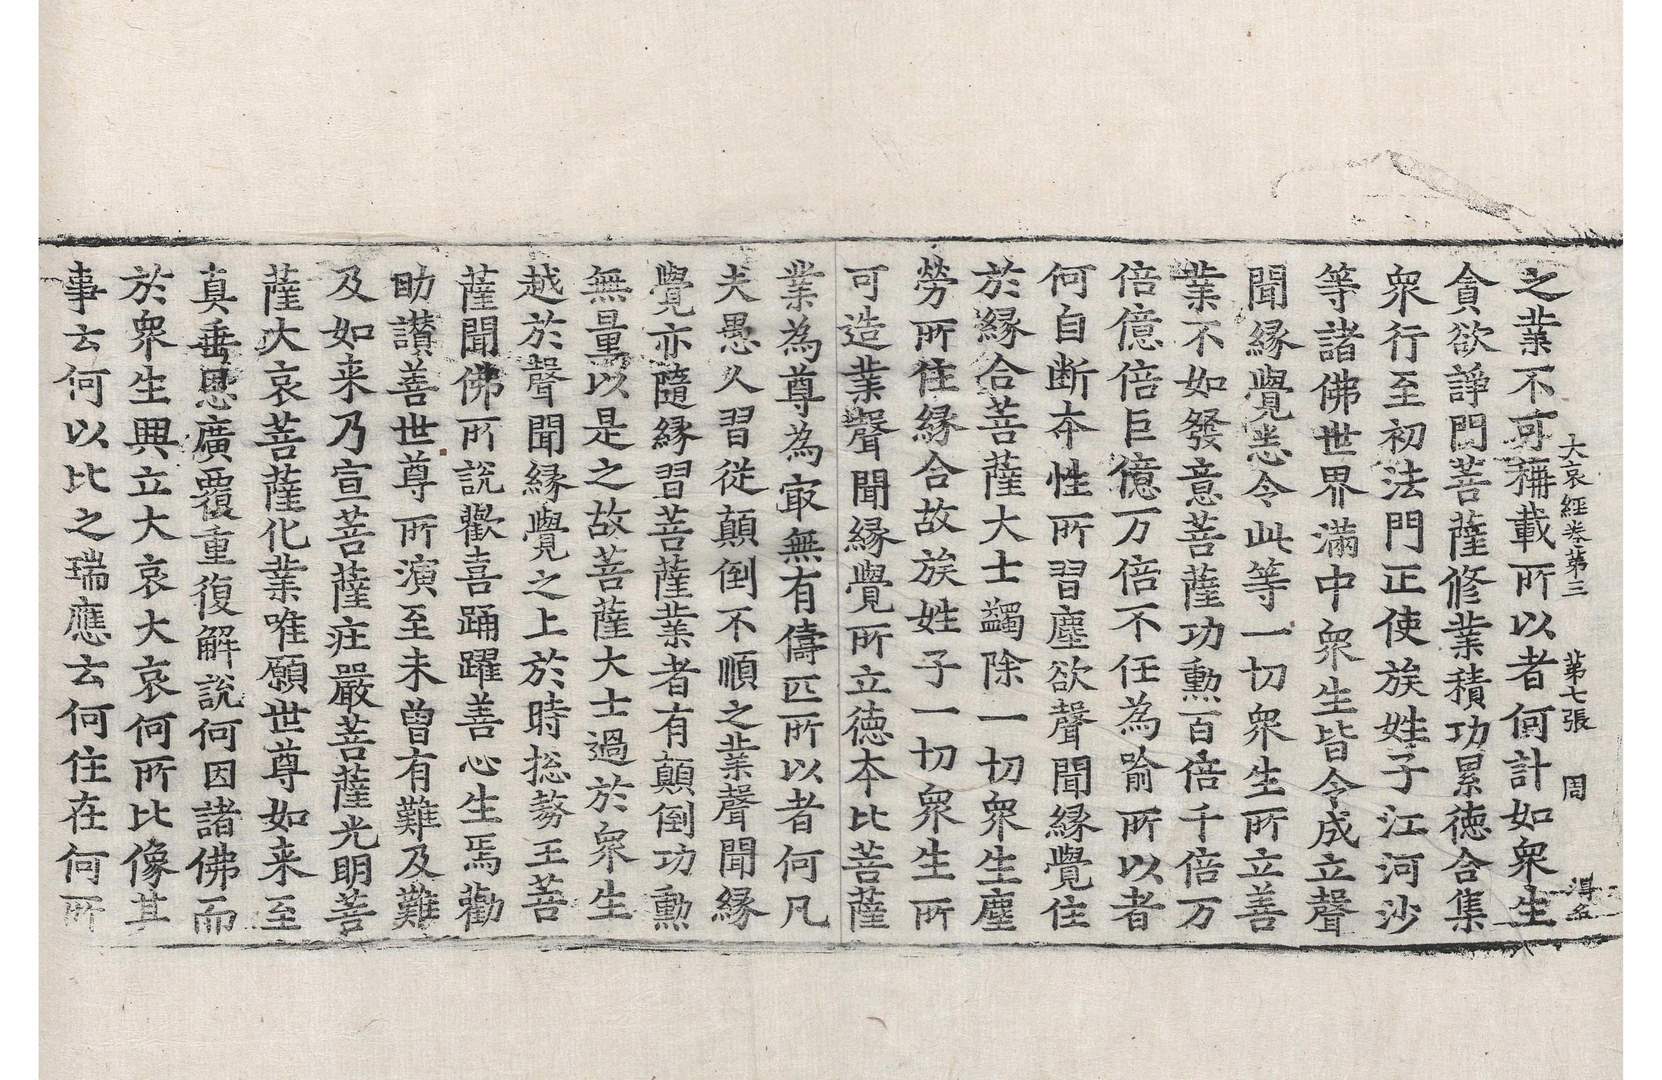 大哀經卷第三 第七張 周
之業不可稱載所以者何計如衆生
貪欲諍門菩薩修業積功累德合集
衆行至初法門正使族姓子江河沙
等諸佛世界滿中衆生皆令成立聲
聞緣覺悉令此等一切衆生所立善
業不如發意菩薩功勲百倍千倍万
倍億倍巨億万倍不任為喻所以者
何自断本性所習塵欲聲聞緣覺住
於緣合菩薩大士蠲除一切衆生塵
勞所住緣合故族姓子一切衆生所
可造業聲聞緣覺所立德本比菩薩
業為尊為㝡無有儔匹所以者何凡
夫愚久習從顛倒不順之業聲聞緣
覺亦隨緣習菩薩業者有顛倒功勲
無量以是之故菩薩大士過於衆生
越於聲聞緣覺之上於時捴𠢕王菩
薩聞佛所說歡喜踊躍善心生焉勸
助讃善世尊所演至未曾有難及難
及如来乃宣菩薩庄嚴菩薩光明菩
薩大哀菩薩化業唯願世尊如来至
真垂恩廣覆重復解說何因諸佛而
於衆生興立大哀大哀何所比像其
事云何以比之瑞應云何住在何所